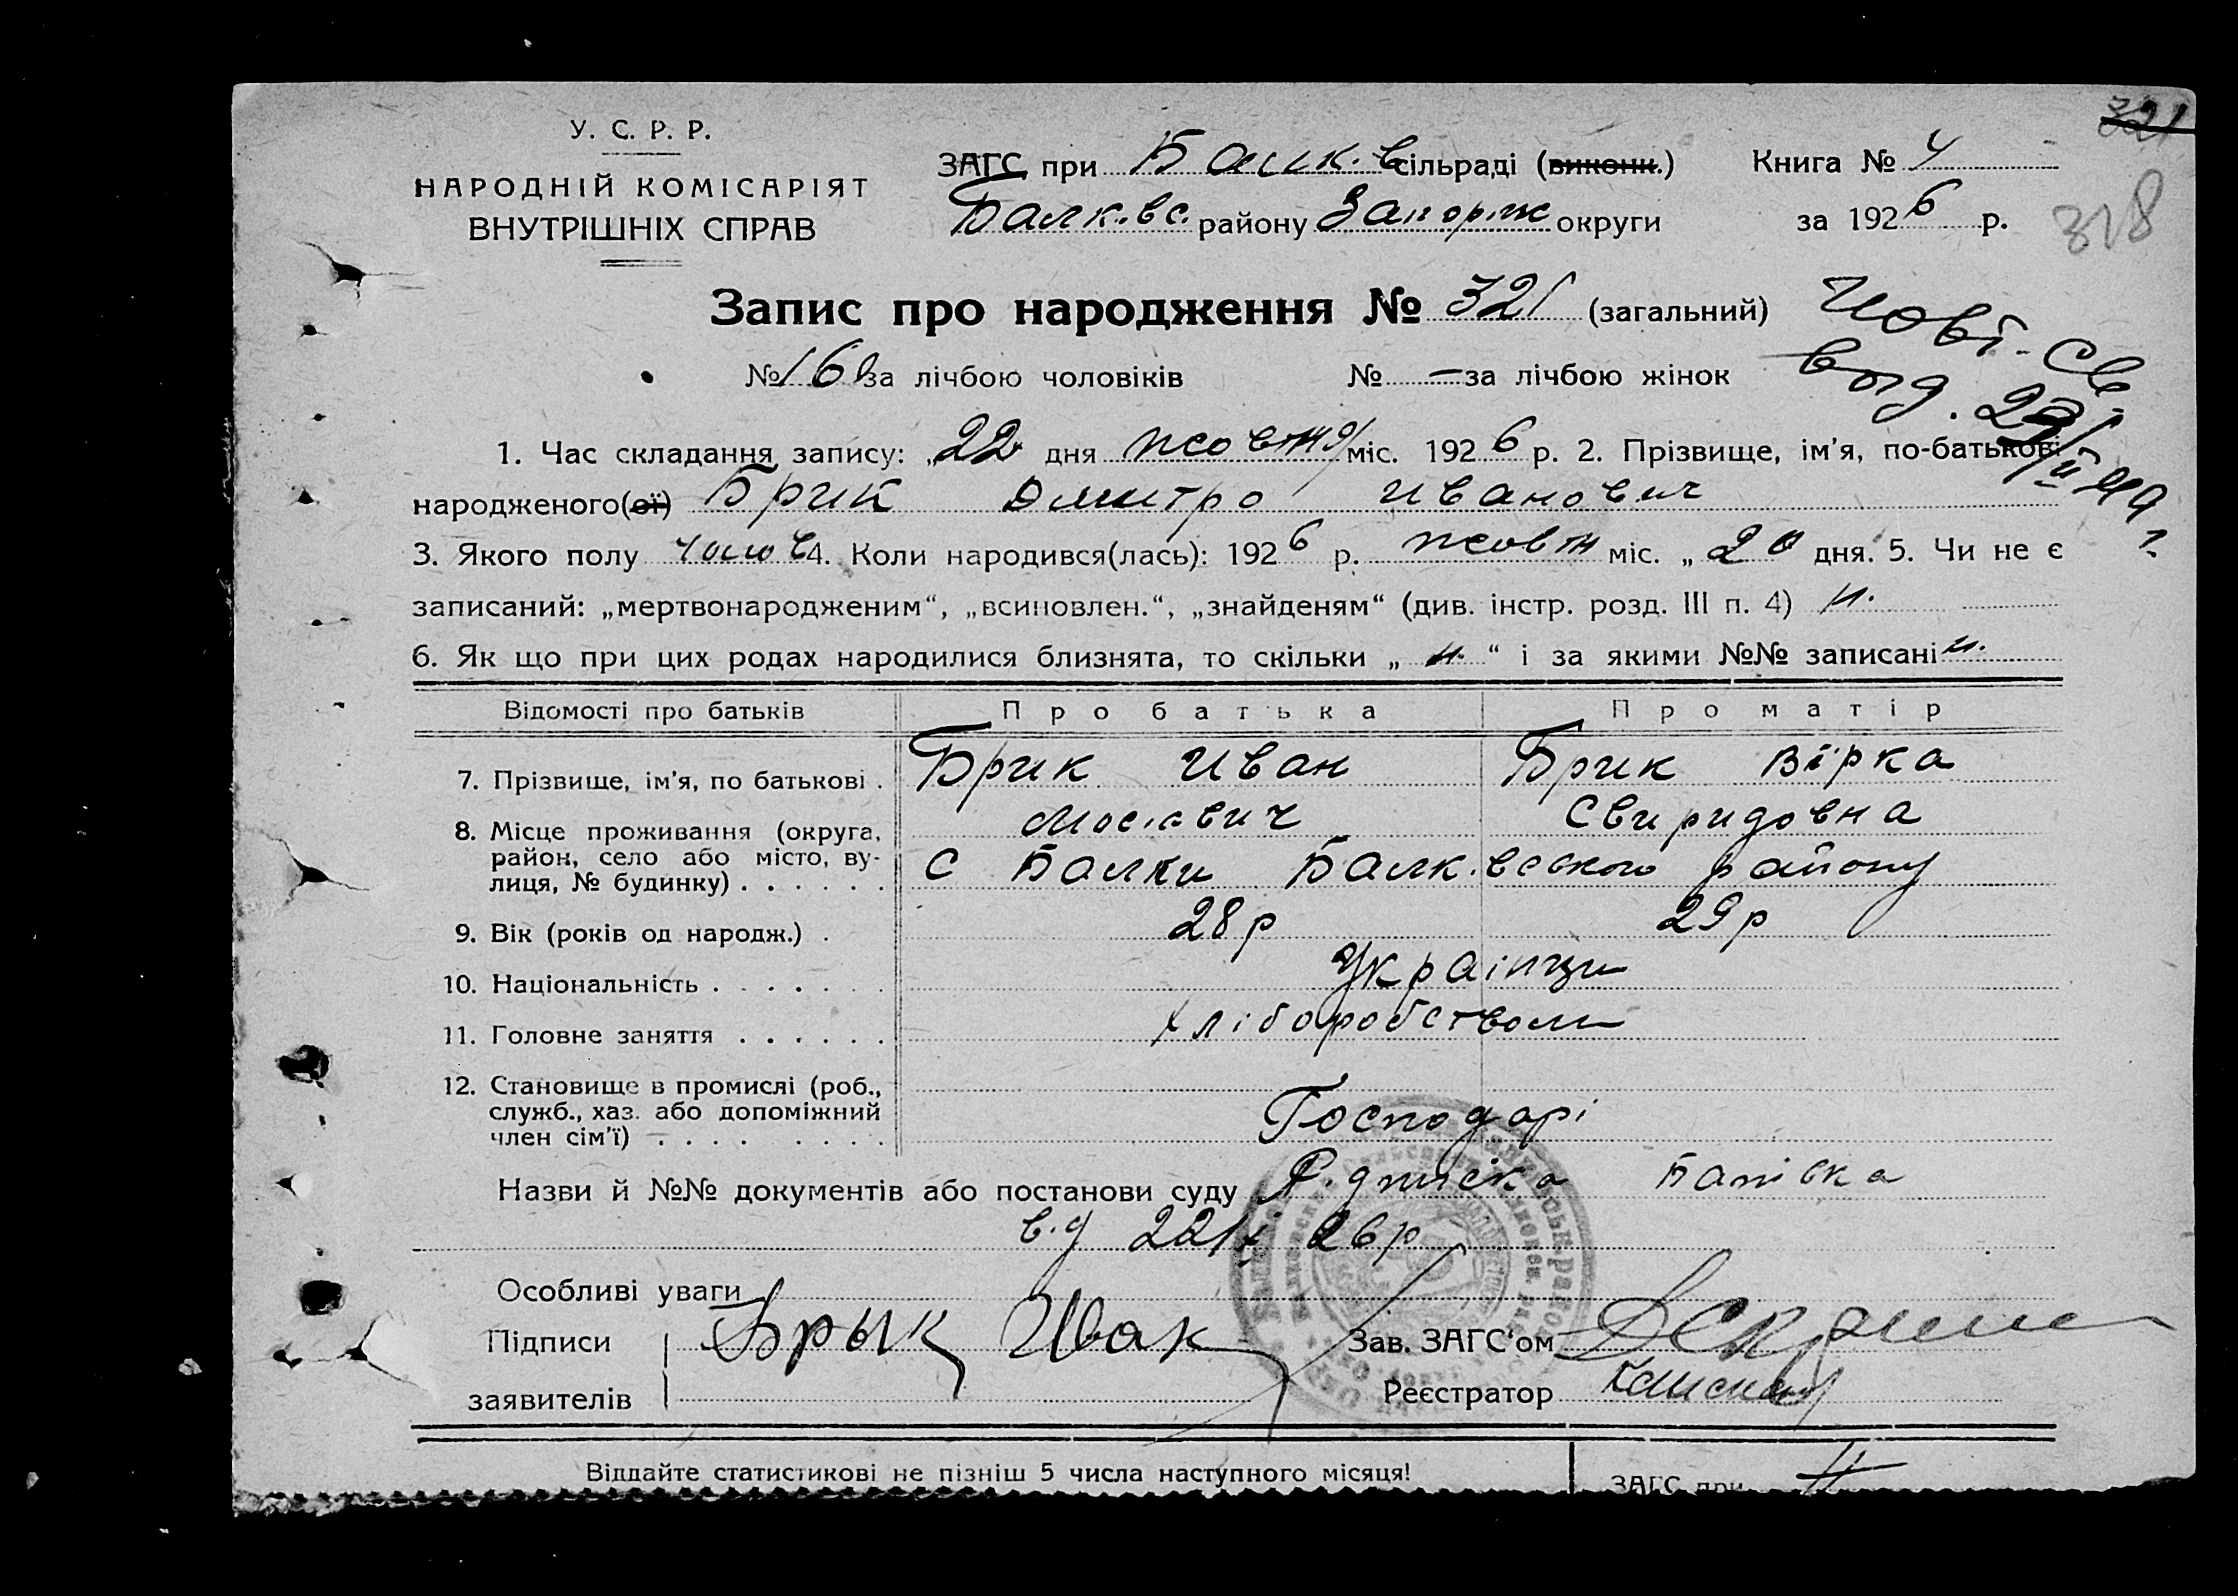 321
У. С. Р. Р.
НАРОДНІЙ КОМІСАРІЯТ
ВНУТРІШНІХ СПРАВ
ЗАГС при Балк. в сільраді (виконк.) Книга № 4
Балк.вс. району Запоріж округи за 1926 р.
318
Запис про народження № 321 (загальний)
№ 160 за лічбою чоловіків № — за лічбою жінок
1. Час складання запису: „22 дня жовтня міс. 1926 р. 2. Прізвище, ім'я, по-батькові
народженого(ої) Брик Дмитро Иванович
3. Якого полу чолов 4. Коли народився(лась): 1926 р. жовтн міс. „20 дня. 5. Чи не є
записаний: „мертвонародженим“, „всиновлен.“, „знайденям“ (див. інстр. розд. III п. 4) н.
6. Як що при цих родах народилися близнята, то скільки „ н. “ і за якими №№ записані н.
Відомості про батьків Про батька Про матір
7. Прізвище, ім'я, по батькові . Брик Иван Брик Вірка
Свиридовна
8. Місце проживання (округа,
район, село або місто, ву-
лиця, № будинку) . . . . . . с Балки Балк.вського району
9. Вік (років од народж.) . 28р 29р
10. Національність . . . . . . . Українци
11. Головне заняття . . . . . . хліборобством
12. Становище в промислі (роб.,
служб., хаз. або допоміжний
член сім'ї) . . . . . . . . Господарі
Назви й №№ документів або постанови суду
в.д 22/X 26р
Особливі уваги
Підписи Брык Иван Зав. ЗАГС'ом
заявителів Реєстратор
Віддайте статистикові не пізніш 5 числа наступного місяця!
ЗАГС при